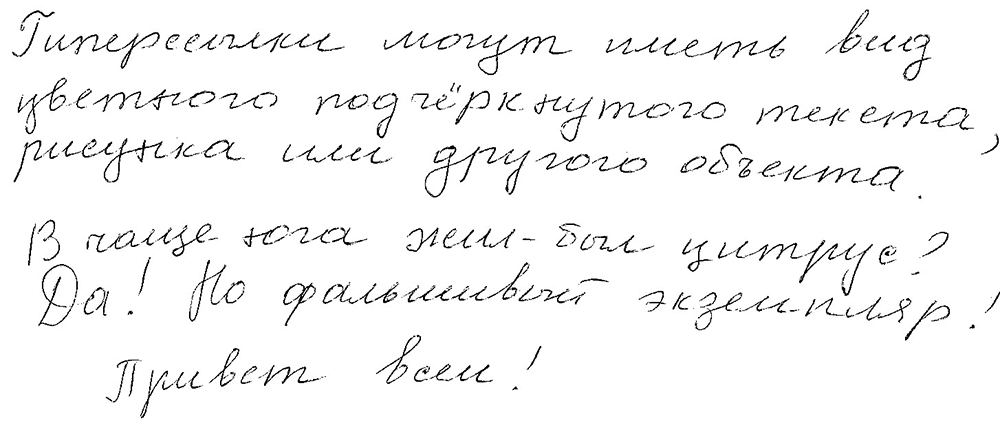 Гиперссылки могут иметь вид
цветного подчёркнутого текста,
рисунка или другого объекта.
В чаще юга жил-был цитрус?
Да! Но фальшивый экземпляр!
Привет всем!